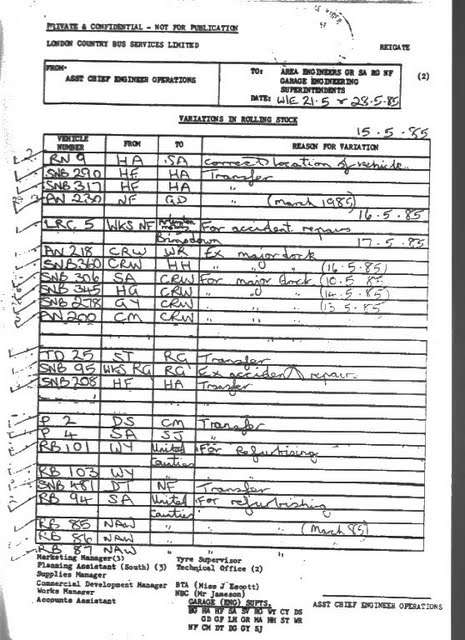 PRIVATE & CONFIDENTIAL - NOT FOR PUBLICATION
LONDON COUNTRY BUS SERVICES LIMITED REIGATE
FROM- ASST CHIEF ENGINEER OPERATIONS
TO: AREA ENGINEERS GR SA RG NF (2)
GARAGE ENGINEERING
SUPERINTENDENTS
DATE: W/E 21.5 & 28.5.85
VARIATIONS IN ROLLING STOCK
15.5.85
VEHICLE NUMBER FROM TO REASON FOR VARIATION
RN 9 HA SA Correct location of vehicle
SNB 290 HF HA Transfer
SNB 317 HF HA "
AN 230 NF GD " (March 1985)
16.5.85
LRC 5 WKS NF For accident repairs
17.5.85
AN 218 CRW WR Ex major dock
SNB 340 CRW HH " " " (16.5.85)
SNB 306 SA CRW For major dock (10.5.85)
SNB 345 HG CRW " " " (14.5.85)
SNB 278 GY CRW " " " (13.5.85)
AN 200 CM CRW " " "
TD 25 ST RG Transfer
SNB 95 WKS RG RG Ex accident repair
SNB 208 HF HA Transfer
P 2 DS CM Transfer
P 4 SA SJ "
RB 101 WY United Counties For Refurbishing
RB 103 WY " "
SNB 481 DT NF Transfer
RB 94 SA United Counties For refurbishing
RB 85 NAW " " (March 85)
RB 86 NAW " "
RB 87 NAW " "
Marketing Manager(3) Tyre Supervisor
Planning Assistant (South) (3) Technical Office (2)
Supplies Manager
Commercial Development Manager BTA (Miss J Escott)
Works Manager NBC (Mr Jameson)
Accounts Assistant GARAGE (ENG) SUPTS. ASST CHIEF ENGINEER OPERATIONS
HG HA HF SA SV RG WY CY DS
GD GF LH GR MA HH ST WR
NF CM DT DG GY SJ